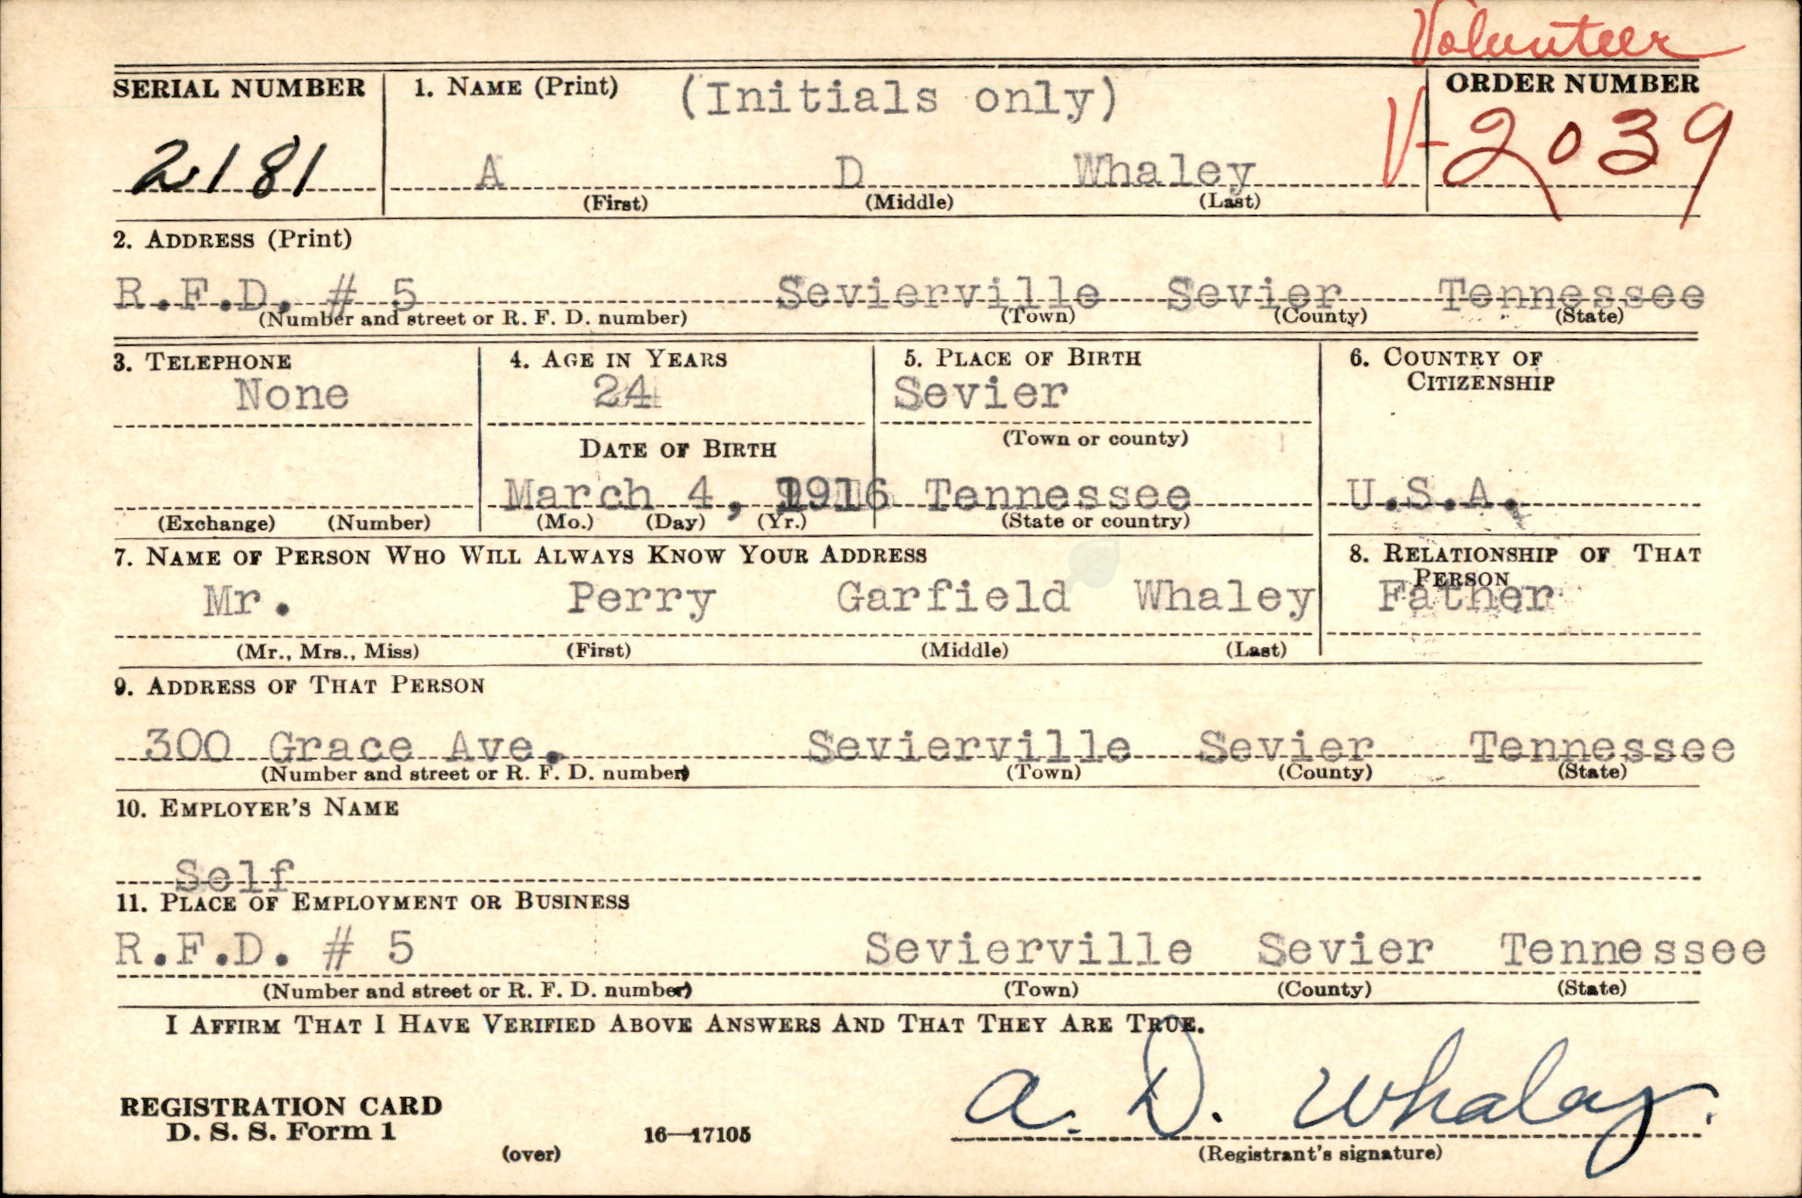 Volunteer
SERIAL NUMBER 1. NAME (Print) (Initials only) ORDER NUMBER
2181 A D Whaley V-2039
(First) (Middle) (Last)
2. ADDRESS (Print)
R.F.D. # 5 Sevierville Sevier Tennessee
(Number and street or R. F. D. number) (Town) (County) (State)
3. TELEPHONE 4. AGE IN YEARS 5. PLACE OF BIRTH 6. COUNTRY OF
CITIZENSHIP
None 24 Sevier
(Town or county)
DATE OF BIRTH
March 4, 1916 Tennessee U.S.A.
(Exchange) (Number) (Mo.) (Day) (Yr.) (State or country)
7. NAME OF PERSON WHO WILL ALWAYS KNOW YOUR ADDRESS 8. RELATIONSHIP OF THAT
PERSON
Mr. Perry Garfield Whaley Father
(Mr., Mrs., Miss) (First) (Middle) (Last)
9. ADDRESS OF THAT PERSON
300 Grace Ave. Sevierville Sevier Tennessee
(Number and street or R. F. D. number) (Town) (County) (State)
10. EMPLOYER'S NAME
Self
11. PLACE OF EMPLOYMENT OR BUSINESS
R.F.D. # 5 Sevierville Sevier Tennessee
(Number and street or R. F. D. number) (Town) (County) (State)
I AFFIRM THAT I HAVE VERIFIED ABOVE ANSWERS AND THAT THEY ARE TRUE.
A. D. Whaley.
REGISTRATION CARD
D. S. S. Form 1 16—17105
(over) (Registrant's signature)